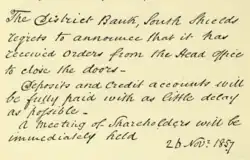 The District Bank, South Shields
regrets to announce that it has
received orders from the Head office
to close the doors —
Deposits and Credit accounts will
be fully paid with as little delay
as possible —
A meeting of Shareholders will be
immediately held
26 Novr. 1857